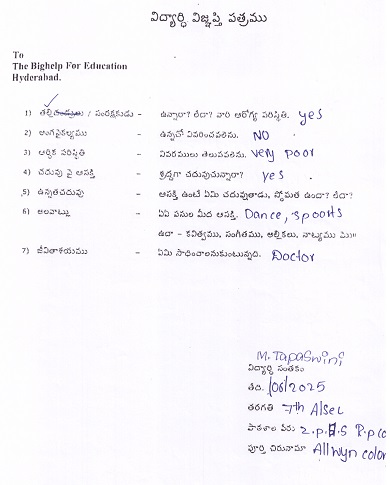 విద్యార్థి విజ్ఞప్తి పత్రము
To
The Bighelp For Education
Hyderabad.
1) తల్లిదండ్రులు / సంరక్షకుడు - ఉన్నారా? లేదా? వారి ఆరోగ్య పరిస్థితి. yes
2) అంగవైకల్యము - ఉన్నచో వివరించవలెను. NO
3) ఆర్థిక పరిస్థితి - వివరములు తెలుపవలెను. very poor
4) చదువు పై ఆసక్తి - శ్రద్ధగా చదువుచున్నారా? yes
5) ఉన్నతచదువు - ఆసక్తి ఉంటే ఏమి చదువుతాడు, స్తోమత ఉందా? లేదా?
6) అలవాట్లు - ఏఏ పనుల మీద ఆసక్తి. Dance, spoorts
ఉదా - కవిత్వము, సంగీతము, అల్లికలు, నాట్యము
7) జీవితాశయము - ఏమి సాధించాలనుకుంటున్నది. Doctor
M. Tapaswini
విద్యార్థి సంతకం
తేది. /06/2025
తరగతి 7th
పాఠశాల పేరు Z.p.H.S
పూర్తి చిరునామా Allwyn colon